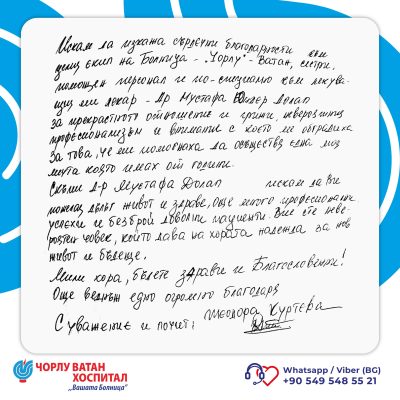 Искам да изкажа сърдечни благодарности към
целия екип на Болница - "Чорлу" - Ватан, сестри,
помощен персонал и по-специално към лекува-
щия ми лекар - Др Мустафа Долап
за прекрасното отношение и грижи, невероятния
професионализъм и внимание с което ме обградиха
За това, че ми помогнаха да осъществя една моя
мечта която имах от години.
Скъпи д-р Мустафа Долап искам да Ви
пожелая дълъг живот и здраве, още много професионални
успехи и безброй доволни пациенти. Вие сте неве-
роятен човек, който дава на хората надежда за нов
живот и бъдеще.
Мили хора, бъдете здрави и Благословени!
Още веднъж едно огромно благодаря
С уважение и почит: Теодора Куртева
ЧОРЛУ ВАТАН
ХОСПИТАЛ
„Вашата Болница"
Whatsapp / Viber (BG)
+90 549 548 55 21